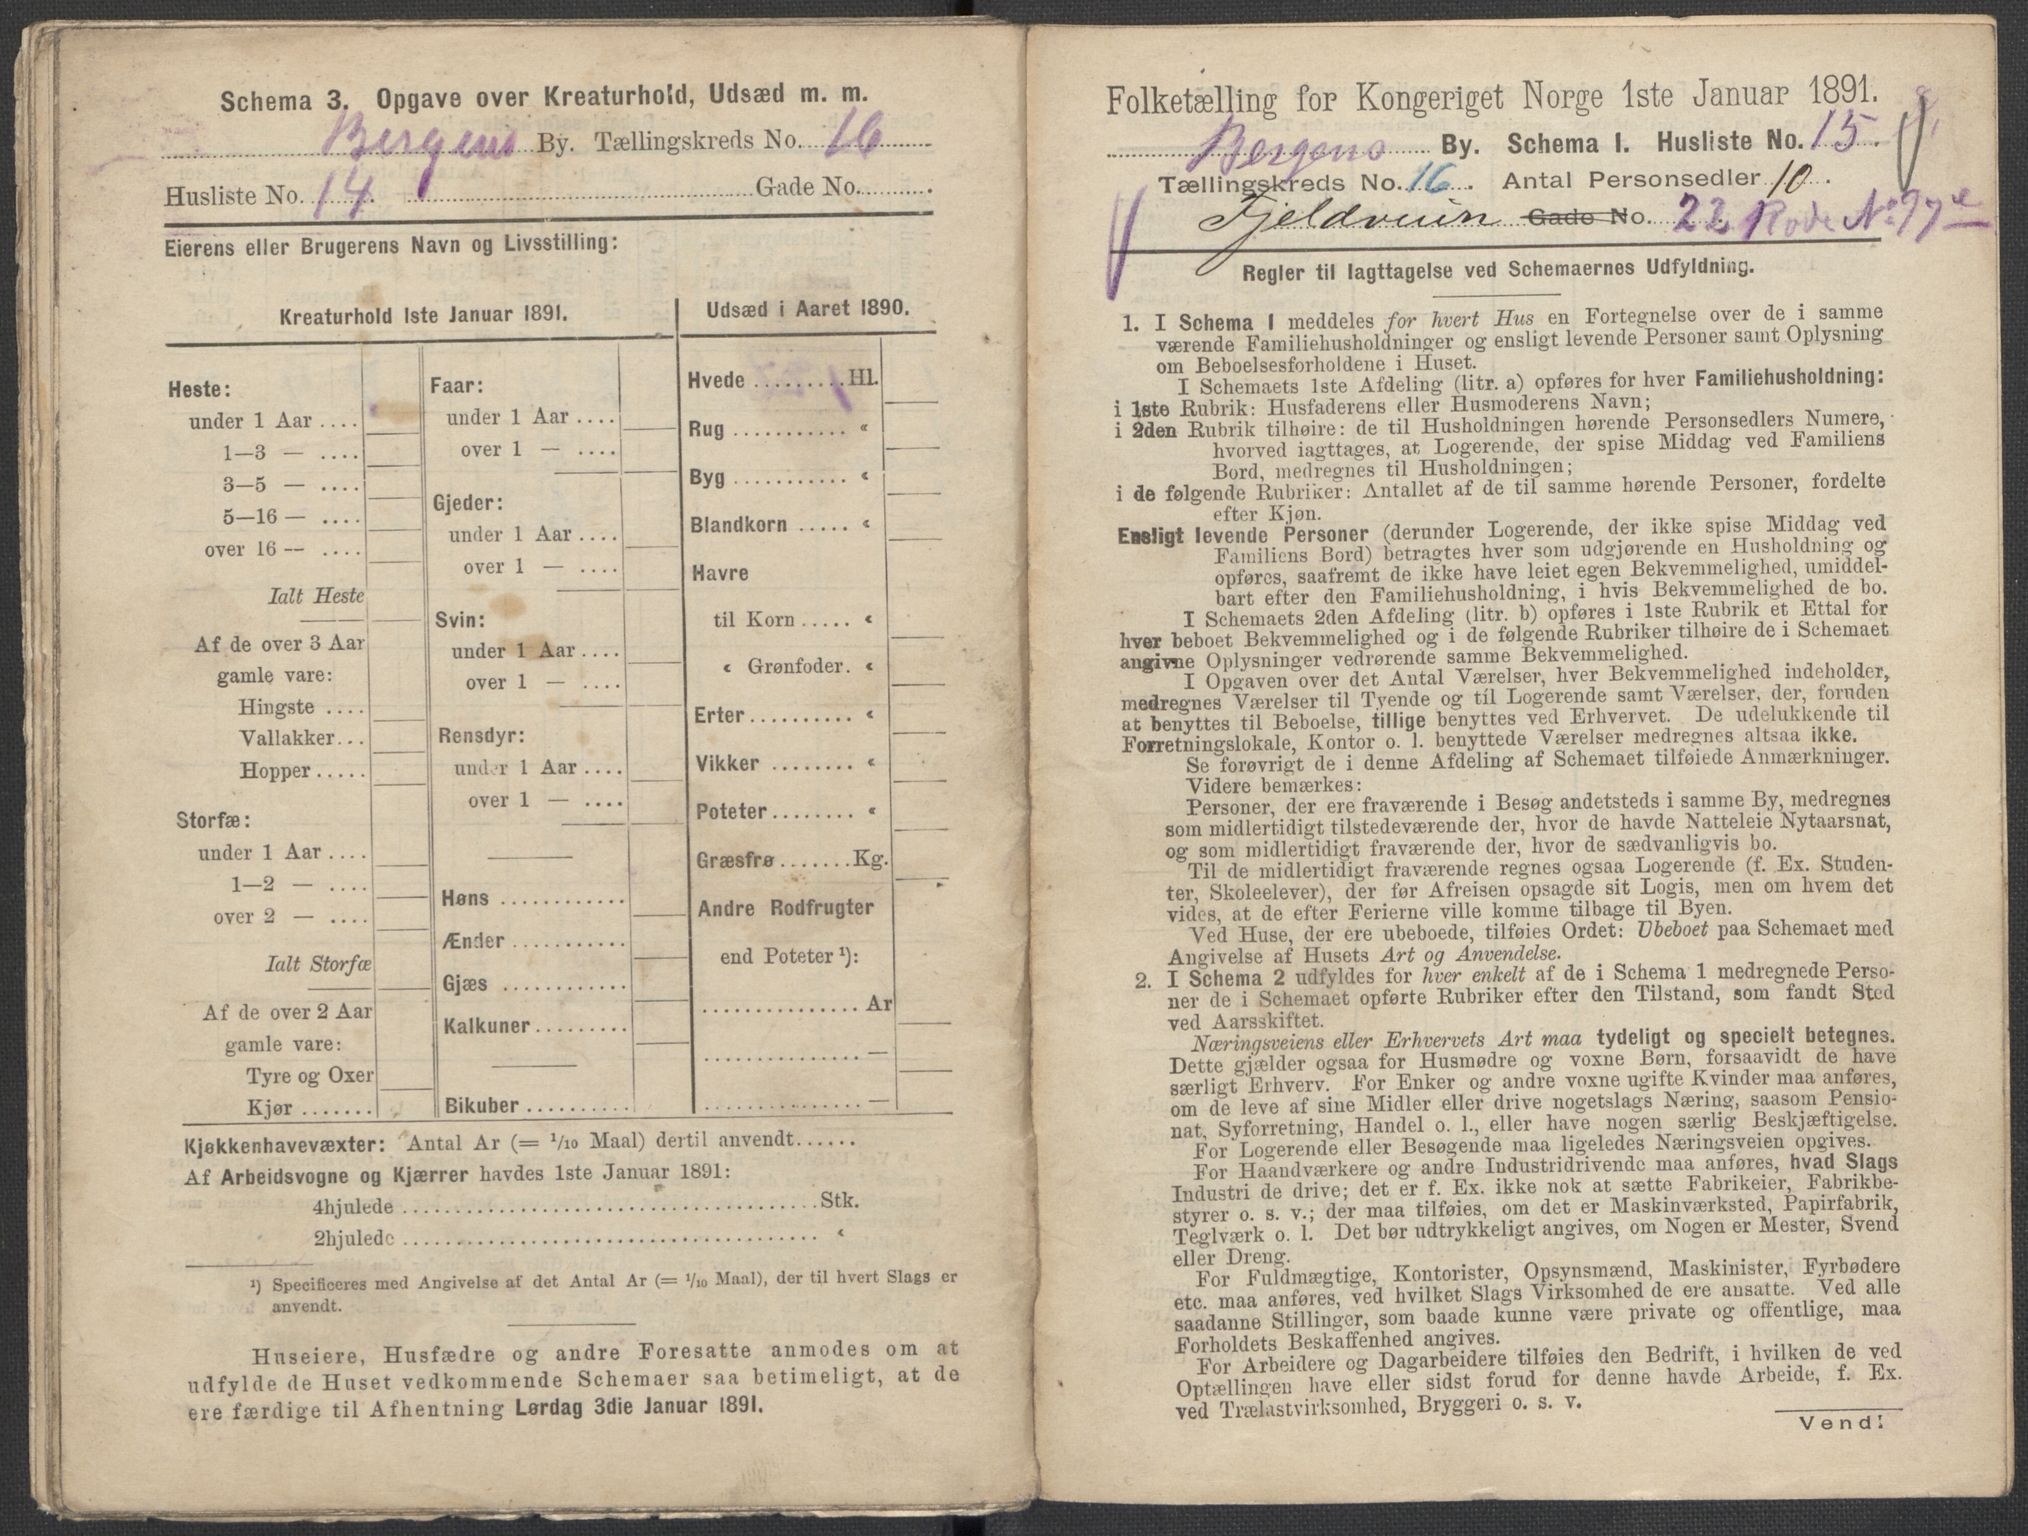 Schema 3. Opgave over Kreaturhold, Udsæd m. m.
Bergens By. Tællingskreds No. 16
Husliste No. 14. Gade No.
Eierens eller Brugerens Navn og Livsstilling:
Kreaturhold 1ste Januar 1891.
Heste:
under 1 Aar ....
1—3 — ....
3—5 — ....
5—16 — ....
over 16 — ....
Ialt Heste
Af de over 3 Aar
gamle vare:
Hingste ....
Vallakker...
Hopper.....
Storfæ:
under 1 Aar ....
1—2 — ....
over 2 — ....
Ialt Storfæ
Af de over 2 Aar
gamle vare:
Tyre og Oxer
Kjør .......
Faar:
under 1 Aar ....
over 1 — ....
Gjeder:
under 1 Aar ....
over 1 — ....
Svin:
under 1 Aar ....
over 1 — ....
Rensdyr:
under 1 Aar ....
over 1 — ....
Høns ............
Ænder ...........
Gjæs ............
Kalkuner.........
Bikuber ..........
Udsæd i Aaret 1890.
Hvede .........Hl.
Rug ........... «
Byg ........... «
Blandkorn ..... «
Havre
til Korn ..... «
« Grønfoder. «
Erter.......... «
Vikker ........ «
Poteter........ «
Græsfrø .......Kg.
Andre Rodfrugter
end Poteter ¹):
............... Ar
............... —
............... —
Kjøkkenhavevæxter: Antal Ar (= 1/10 Maal) dertil anvendt......
Af Arbeidsvogne og Kjærrer havdes 1ste Januar 1891:
4hjulede ........................................Stk.
2hjulede ........................................ «
¹) Specificeres med Angivelse af det Antal Ar (= 1/10 Maal), der til hvert Slags er
anvendt.
Huseiere, Husfædre og andre Foresatte anmodes om at
udfylde de Huset vedkommende Schemaer saa betimeligt, at de
ere færdige til Afhentning Lørdag 3die Januar 1891.
Folketælling for Kongeriget Norge 1ste Januar 1891.
Bergens By. Schema 1. Husliste No. 15.
Tællingskreds No. 16. Antal Personsedler 10.
Fjeldveien Gade No. 22 Rode No 77
Regler til Iagttagelse ved Schemaernes Udfyldning.
1. I Schema 1 meddeles for hvert Hus en Fortegnelse over de i samme
værende Familiehusholdninger og ensligt levende Personer samt Oplysning
om Beboelsesforholdene i Huset.
I Schemaets 1ste Afdeling (litr. a) opføres for hver Familiehusholdning:
i 1ste Rubrik: Husfaderens eller Husmoderens Navn;
i 2den Rubrik tilhøire: de til Husholdningen hørende Personsedlers Numere,
hvorved iagttages, at Logerende, der spise Middag ved Familiens
Bord, medregnes til Husholdningen;
i de følgende Rubriker: Antallet af de til samme hørende Personer, fordelte
efter Kjøn.
Ensligt levende Personer (derunder Logerende, der ikke spise Middag ved
Familiens Bord) betragtes hver som udgjørende en Husholdning og
opføres, saafremt de ikke have leiet egen Bekvemmelighed, umiddel-
bart efter den Familiehusholdning, i hvis Bekvemmelighed de bo.
I Schemaets 2den Afdeling (litr. b) opføres i 1ste Rubrik et Ettal for
hver beboet Bekvemmelighed og i de følgende Rubriker tilhøire de i Schemaet
angivne Oplysninger vedrørende samme Bekvemmelighed.
I Opgaven over det Antal Værelser, hver Bekvemmelighed indeholder,
medregnes Værelser til Tyende og til Logerende samt Værelser, der, foruden
at benyttes til Beboelse, tillige benyttes ved Erhvervet. De udelukkende til
Forretningslokale, Kontor o. l. benyttede Værelser medregnes altsaa ikke.
Se forøvrigt de i denne Afdeling af Schemaet tilføiede Anmærkninger.
Videre bemærkes:
Personer, der ere fraværende i Besøg andetsteds i samme By, medregnes
som midlertidigt tilstedeværende der, hvor de havde Natteleie Nytaarsnat,
og som midlertidigt fraværende der, hvor de sædvanligvis bo.
Til de midlertidigt fraværende regnes ogsaa Logerende (f. Ex. Studen-
ter, Skoleelever), der før Afreisen opsagde sit Logis, men om hvem det
vides, at de efter Ferierne ville komme tilbage til Byen.
Ved Huse, der ere ubeboede, tilføies Ordet: Ubeboet paa Schemaet med
Angivelse af Husets Art og Anvendelse.
2. I Schema 2 udfyldes for hver enkelt af de i Schema 1 medregnede Perso-
ner de i Schemaet opførte Rubriker efter den Tilstand, som fandt Sted
ved Aarsskiftet.
Næringsveiens eller Erhvervets Art maa tydeligt og specielt betegnes.
Dette gjælder ogsaa for Husmødre og voxne Børn, forsaavidt de have
særligt Erhverv. For Enker og andre voxne ugifte Kvinder maa anføres,
om de leve af sine Midler eller drive nogetslags Næring, saasom Pensio-
nat, Syforretning, Handel o. l., eller have nogen særlig Beskjæftigelse.
For Logerende eller Besøgende maa ligeledes Næringsveien opgives.
For Haandværkere og andre Industridrivende maa anføres, hvad Slags
Industri de drive; det er f. Ex. ikke nok at sætte Fabrikeier, Fabrikbe-
styrer o. s. v.; der maa tilføies, om det er Maskinværksted, Papirfabrik,
Teglværk o. l. Det bør udtrykkeligt angives, om Nogen er Mester, Svend
eller Dreng.
For Fuldmægtige, Kontorister, Opsynsmænd, Maskinister, Fyrbødere
etc. maa anføres, ved hvilket Slags Virksomhed de ere ansatte. Ved alle
saadanne Stillinger, som baade kunne være private og offentlige, maa
Forholdets Beskaffenhed angives.
For Arbeidere og Dagarbeidere tilføies den Bedrift, i hvilken de ved
Optællingen have eller sidst forud for denne havde Arbeide, f. Ex.
ved Trælastvirksomhed, Bryggeri o. s. v.
Vend!